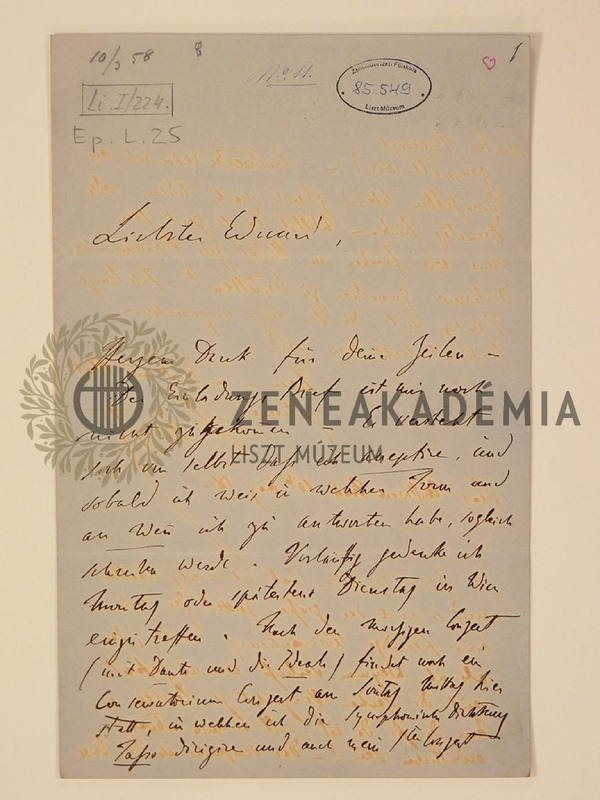 10/3 58
8
No 11.
Zeneművészeti Főiskola
85.549
Liszt Múzeum
1
Li. I/224.
Ep. L. 25
Liebster Eduard,
Herzen Dank für deine Zeilen –
Der Einladungs Brief ist mir noch
nicht zugekommen – Es versteht
sich von selbst dass ich acceptire, und
sobald ich weis in welcher Form und
an Wem ich zu antworten habe, sogleich
schreiben werde. Vorläufig gedenke ich
Montag oder spätestens Dienstag in Wien
einzutreffen. Nach dem morgigen Conzert
(mit Dante und die Ideale) findet noch ein
Conservatorium Conzert am Sontag Mittag hier
statt, in welchen ich die symphonische Dichtung
Tasso dirigire und auch mein Conzert
ZENEAKADÉMIA
LISZT MÚZEUM